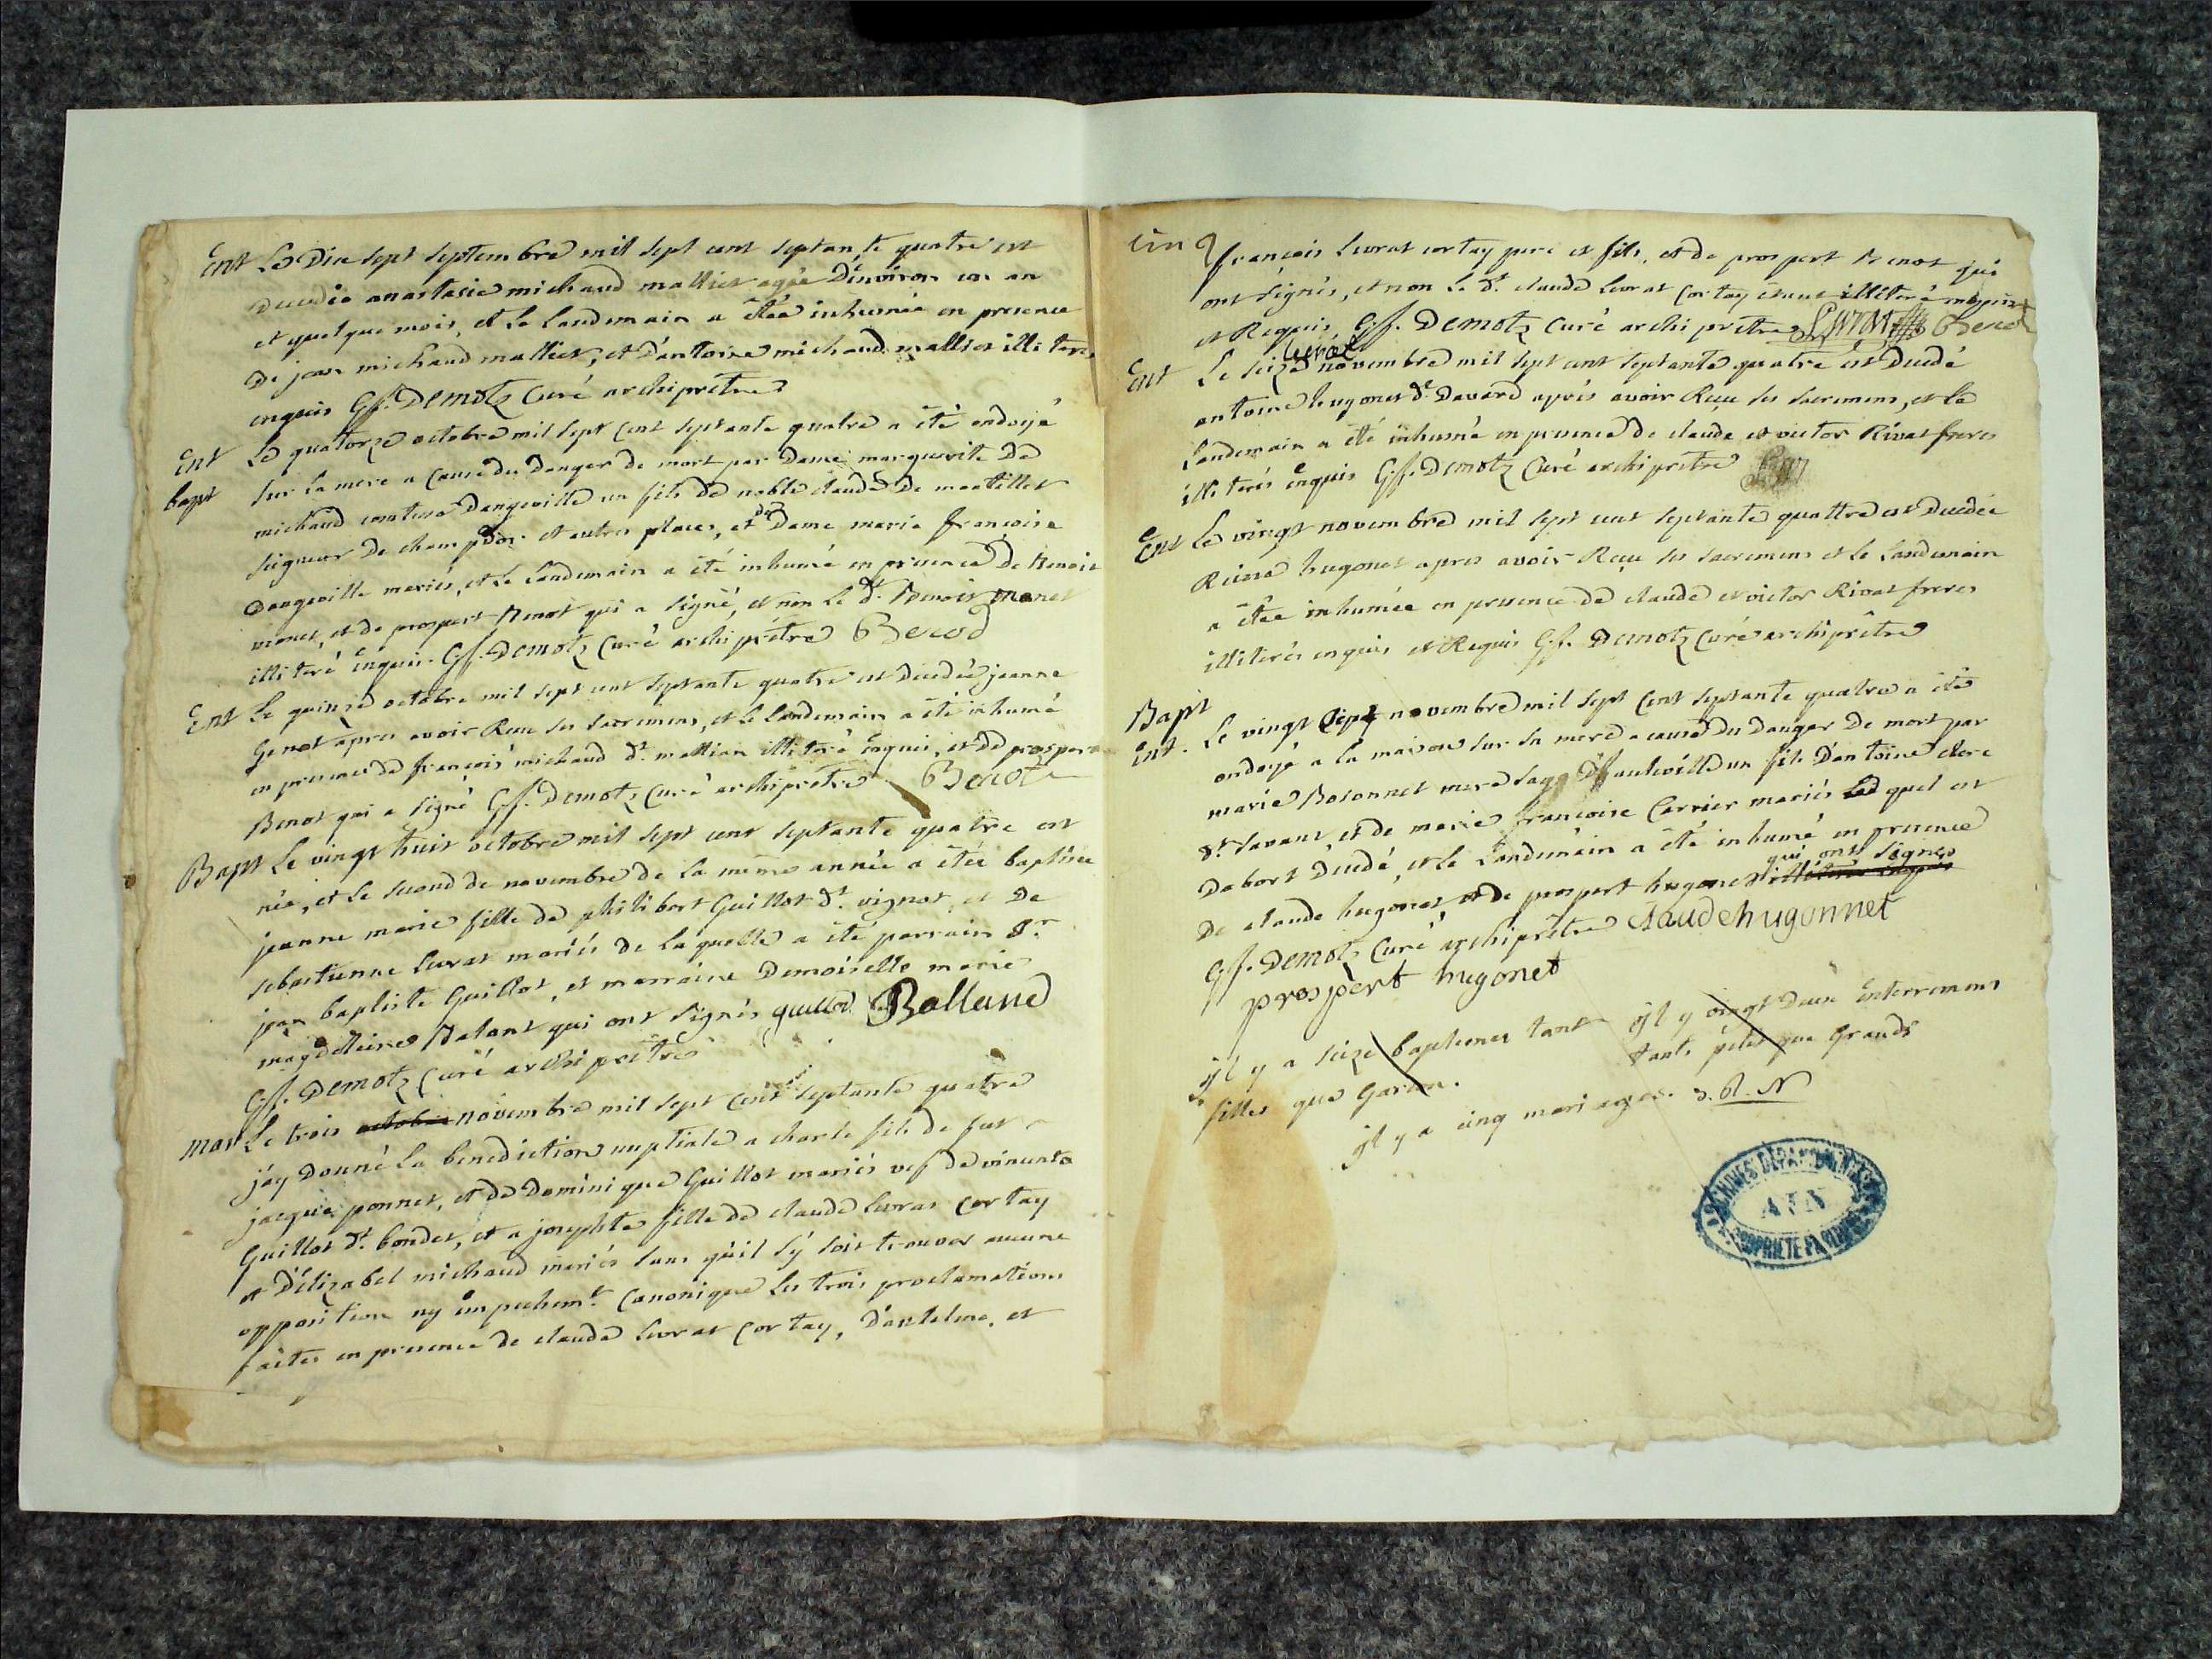 Ent Le Dix sept septembre mil sept cent septante quatre est
decedée anastasie michaud mattiet agée D'environ un an
et quelque mois, et le landemain a étée inhumée en presence
De jean michaud mattiet, et d'antoine michaud mattiet illiterés
enquis G.f. Demotz Curé archiprêtre
Ent Le quatorze octobre mil sept cent septante quatre a été ondoyé
bapt sur la mere a cause du danger de mort par Dame marguerite de
michaud comtesse Dangeville un fils de noble claude De montillet
seigneur De champdor et autres places, et de Dame marie françoise
Dangeville mariés, et le landemain a été inhumé en presence de Benoit
monet, et de prospert Benot qui a signé, et non le dt. Benoit monet
illiteré enquis. G.f. Demotz Curé archiprêtre Benod
Ent Le quinze octobre mil sept cent septante quatre est decedée jeanne
Genot apres avoir Recu ses sacremens, et le landemain a été inhumé
en presence de françois michaud dt. mattian illiteré enquis, et de prospert
Benot qui a signé G.f. Demotz Curé archiprêtre Benot
Bapt Le vingt huit octobre mil sept cent septante quatre est
née, et le second de novembre de la même année a étée baptisée
jeanne marie fille de philibert Guillot dt. vignot, et De
sebastienne Levrat mariés de laquelle a été parrain Sr.
jean baptiste Guillot, et marraine Demoiselle marie
magdelleine Balant qui ont signés guillot Balland
G.f. Demotz Curé archiprêtre
mar Le trois octobre novembre mil sept cent septante quatre
j'ay Donné la benediction nuptiale a charle fils de fut
jacque ponnet, et de Dominique Guillot mariés vef de vincente
Guillot dt. bondet, et a josephte fille de claude levrat cortay
et D'élizabet michaud mariés sans qu'il s'y soit trouver aucune
opposition ny empechemt. Canonique les trois proclamations
faites en presence de claude levrat cortay, D'antelme, et
cinq
françois Levrat cortay pere et fils, et de prospert Benot qui
ont signés, et non le dt. claude levrat cortay étant illiteré enquis
et Requis G.f. Demotz Curé archiprêtre Levrat Benod
levrat
Ent Le seize novembre mil sept cent septante quatre est decedé
antoine hugonet dt. Davard après avoir Reçu ses sacremens, et le
landemain a été inhumé en presence de claude et victor Rivat freres
illiterés enquis G.f. Demotz Curé archiprêtre
Ent Le vingt novembre mil sept cent septante quattre est decedée
hugonet apres avoir Reçu ses sacremens et le landemain
a étée inhumée en presence de claude et victor Rivat freres
illiterés enquis et Requis G.f. Demotz Curé archiprêtre
Bapt
Ent. Le vingt sept novembre mil sept cent septante quatre a été
ondoyé a la maison sur sa mere a cause du danger De mort par
marie Bosonnet mere sage D'hauteville un fils D'antoine clerc
dt. savant, et de marie françoise Carrier mariés lequel est
Dabort decedé, et le landemain a été inhumé en presence
De claude hugonet et de prospert hugonet illiterés enquis qui ont signés
G.f. Demotz Curé archiprêtre Claude hugonnet
prospert hugonet
il y a seize baptemes tant
filles que garson.
il y vingt deux Enterremens
tants petits que grands
il y a cinq mariages. D. R. N
ARCHIVES DEPARTEMENTALES
AIN
PROPRIETE PUBLIQUE